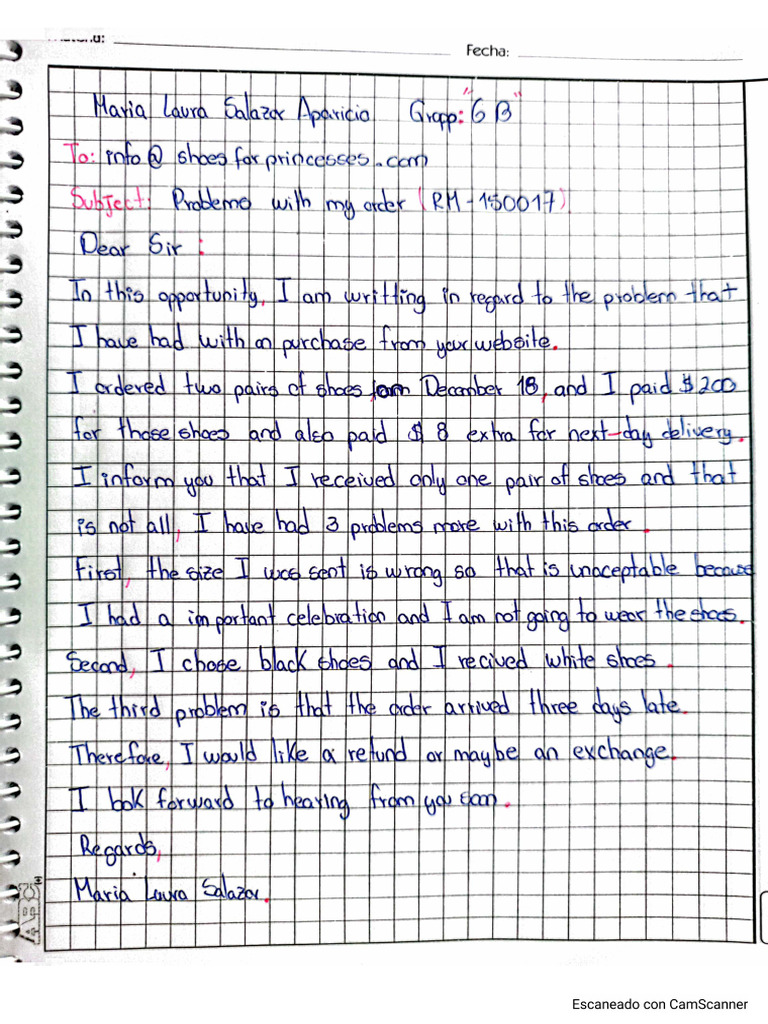 Fecha:
Maria Laura Salazar Aparicio Grapp: "6 B"
To: info@ shoesforprincesses.com
Subject: Problems with my order (RM-150017)
Dear Sir :
In this opportunity, I am writting in regard to the problem that
I have had with an purchase from your website.
I ordered two pairs of shoes on December 18, and I paid $200
for those shoes and also paid $ 8 extra for next-day delivery.
I inform you that I received only one pair of shoes and that
is not all, I have had 3 problems more with this order.
First, the size I was sent is wrong so that is unaceptable because
I had a important celebration and I am not going to wear the shoes.
Second, I chose black shoes and I recived white shoes.
The third problem is that the order arrived three days late.
Therefore, I would like a refund or maybe an exchange.
I look forward to hearing from you soon.
Regards,
Maria Laura Salazar.
Escaneado con CamScanner